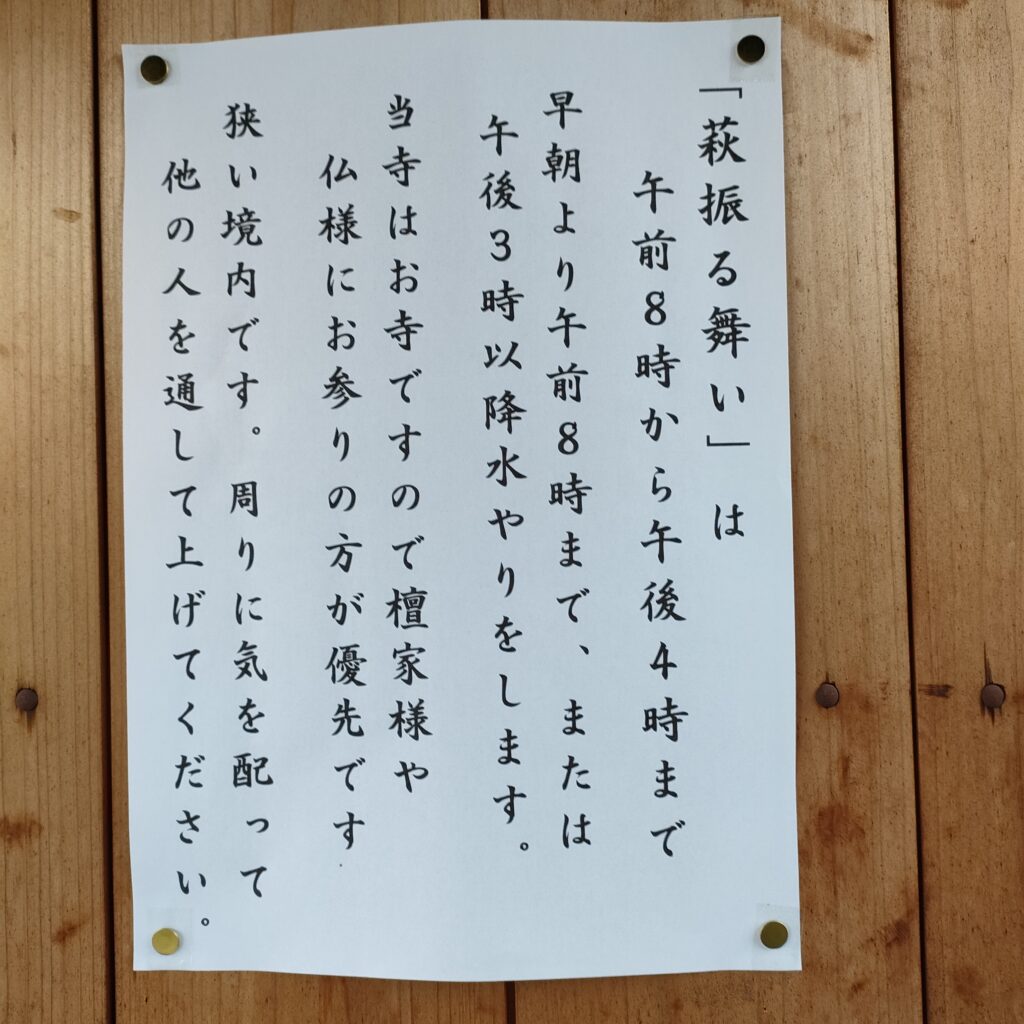 「萩振る舞い」は
午前8時から午後4時まで
早朝より午前8時まで、または
午後3時以降水やりをします。
当寺はお寺ですので檀家様や
仏様にお参りの方が優先です
狭い境内です。周りに気を配って
他の人を通して上げてください。